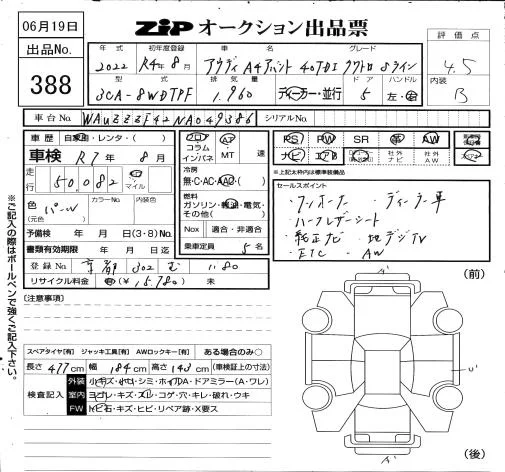 06月19日
出品No.
388
ZIP オークション出品票
評価点
4.5
内装
B
年式 初年度登録 車名 グレード
2022 R4年8月 アウディ A4アバント 40TDI クワトロ Sライン
型式 排気量 ドア ハンドル
3CA-8WDTPF 1,960 ディーラー・並行 5 左・右
車台No. WAUZZZF42NA049386 シリアルNo.
車歴 自家用・レンタ・( )
車検 R7年8月
走行 50,082 km マイル
色 (元色) パール カラーNo. 内装色
予備検 年 月 日(3・8)No.
書類有効期限 年 月 日迄
登録No. 京都 302 む 1180
リサイクル料金 済(¥15,780) 未
フロア コラム インパネ
AT MT 速
冷房
無・C・AC・AAC・( )
燃料
ガソリン・軽油・電気・その他( )
Nox 適合・非適合
乗車定員 5名
PS PW SR 革 AW
ナビ エアB 社外ナビ 社外AW
※上記太枠内は標準装備品
セールスポイント
・ワンオーナー ・ディーラー車
・ハーフレザーシート
・純正ナビ ・地デジTV
・ETC ・AW
(注意事項)
スペアタイヤ[有] ジャッキ工具[有] AWロックキー[有] ある場合のみ○
長さ 477cm 幅 184cm 高さ 143cm (車検証上の寸法)
検査記入
外装 小キズ・小凹・シミ・ホイルA・ドアミラー(A・ワレ)
室内 ヨゴレ・キズ・スレ・コゲ・穴・キレ・破れ・ウキ
FW トビ石・キズ・ヒビ・リペア跡・X要ス
(前)
(後)
※ご記入の際はボールペンで強くご記入下さい。